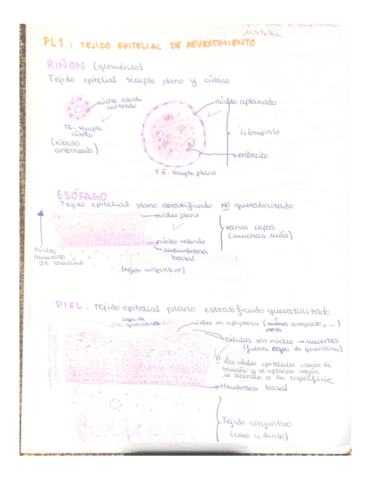 PL1: TEJIDO EPITELIAL DE REVESTIMIENTO
RIÑON (glomérulo)
Tejido epitelial simple plano y cúbico
núcleo redondo
centrado
núcleo aplanado
T.E. simple
cúbico
(túbulo
contorneado)
Glomérulo
eritrocito
T.E. simple plano
ESÓFAGO
Tejido epitelial plano estratificado NO queratinizado
núcleo plano
varias capas
(muchas más)
núcleo redondo
membrana
basal
Núcleo
aumenta
de tamaño
(tejido conjuntivo)
PIEL: Tejido epitelial plano estratificado queratinizado
capa de
queratinizado
núcleo en apoptosis
compacto,...)
células sin núcleo → muertas
(fuera capa de queratina)
las células epiteliales crecen de
tamaño y se aplanan según
se acercan a la superficie
Membrana basal
Tejido conjuntivo
(laxo y denso)